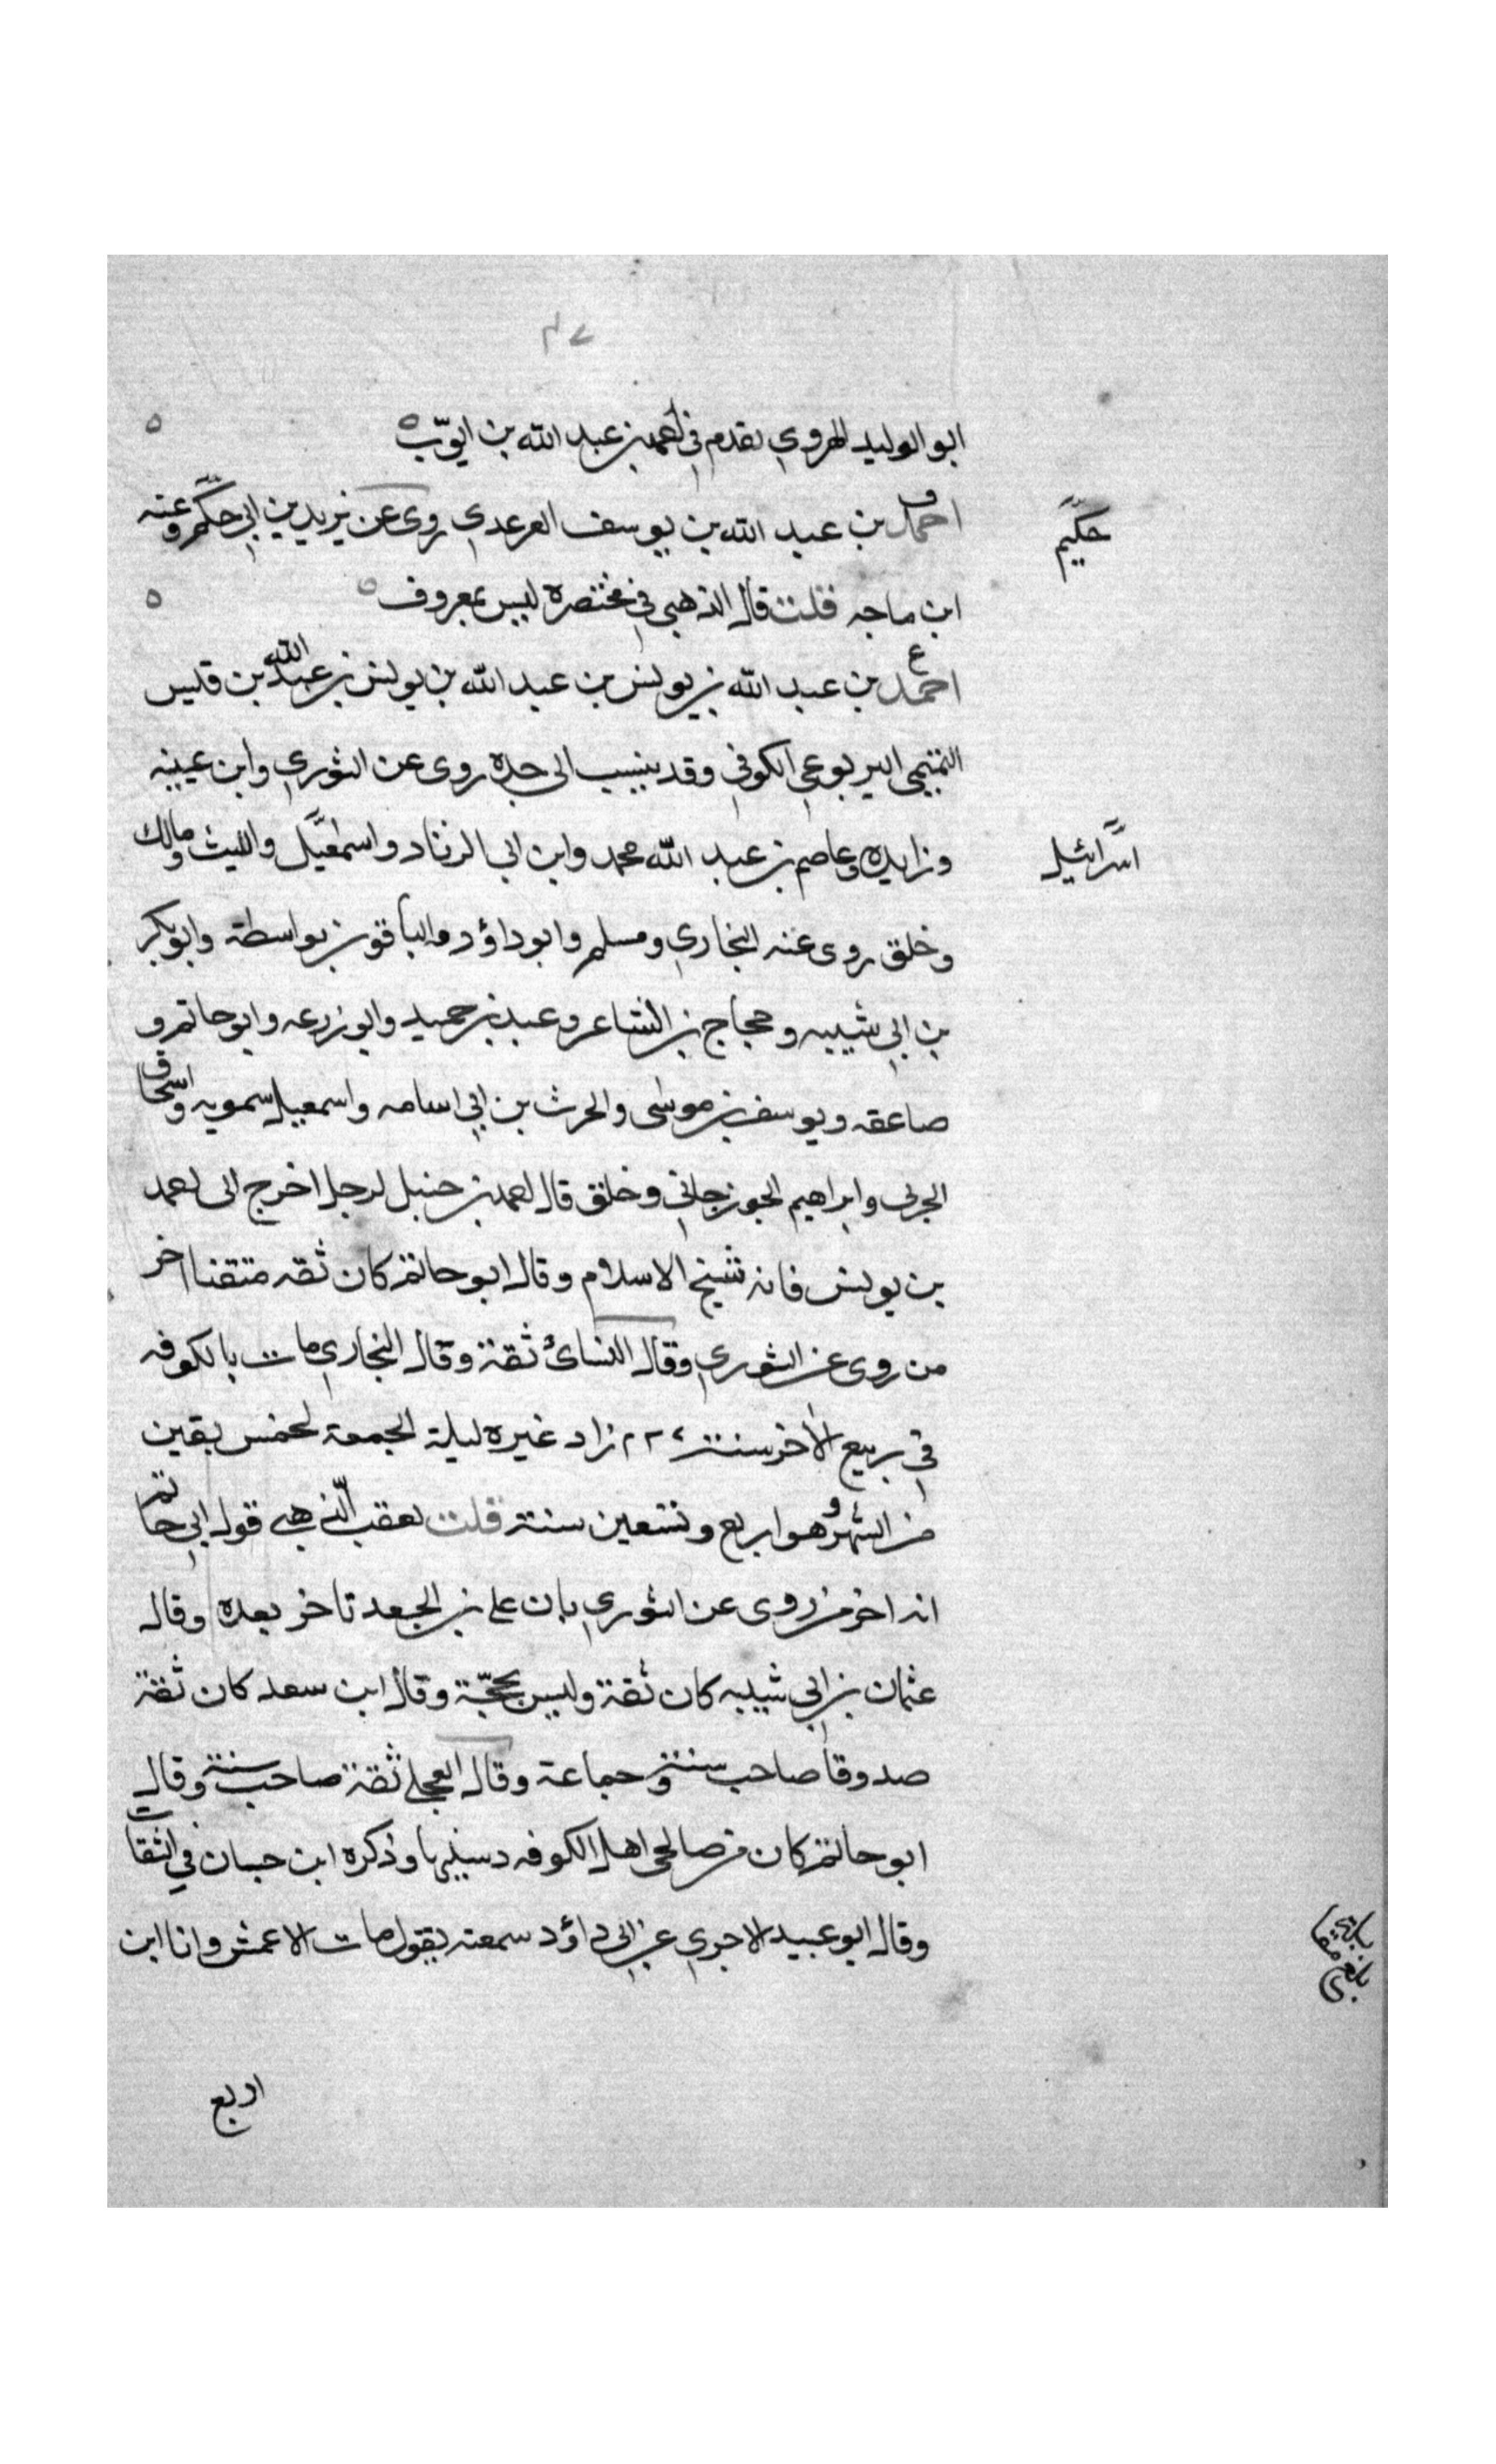 ٤٧
ابو الوليد الهروي تقدم في احمد بن عبد الله بن ايوب ٥
احمد بن عبد الله بن يوسف العرعدي روى عن يزيد بن ابي حكم وعنه
حكيم
ابن ماجه قلت قال الذهبي في مختصره ليس بمعروف ٥
احمد بن عبد الله بن يونس بن عبد الله بن يونس بن عبد الله بن قيس
التميمي اليربوعي الكوفي وقد ينسب الى جده روى عن الثوري وابن عيينه
وزايده وعاصم بن عبد الله محمد وابن ابي الزناد واسمعيل والليث ومالك
اسرائيل
وخلق روى عنه البخاري ومسلم وابو داؤد والباقون بواسطة وابو بكر
بن ابي شيبه وحجاج بن الشاعر وعبد بن حميد وابو زرعه وابو حاتم و
صاعقه ويوسف بن موسى والحرث بن ابي اسامه واسمعيل سمويه واسحاق
الحربى وابراهيم الجوزجاني وخلق قال احمد بن حنبل لرجل اخرج الى احمد
بن يونس فانه شيخ الاسلام وقال ابو حاتم كان ثقه متقنا اخر
من روى عن الثوري وقال النسائ ثقة وقال البخاري مات بالكوفه
في ربيع الاخر سنة ٢٢٧ زاد غيره ليلة الجمعة لخمس بقين
من الشهر وهو ابن اربع وتسعين سنة قلت تعقب الذهبي قول ابي حاتم
انه اخر من روى عن الثوري بان على بن الجعد تاخر بعده وقال
عثمان بن ابي شيبه كان ثقة وليس بحجّة وقال ابن سعد كان ثقة
صدوقا صاحب سنة وجماعة وقال العجلي ثقة صاحب سنة وقال
ابو حاتم كان من صالحي اهل الكوفه وسنييها وذكره ابن حبان في الثقات
وقال ابو عبيد الاجري عن ابي داؤد سمعته يقول مات الاعمش وانا ابن
اربع